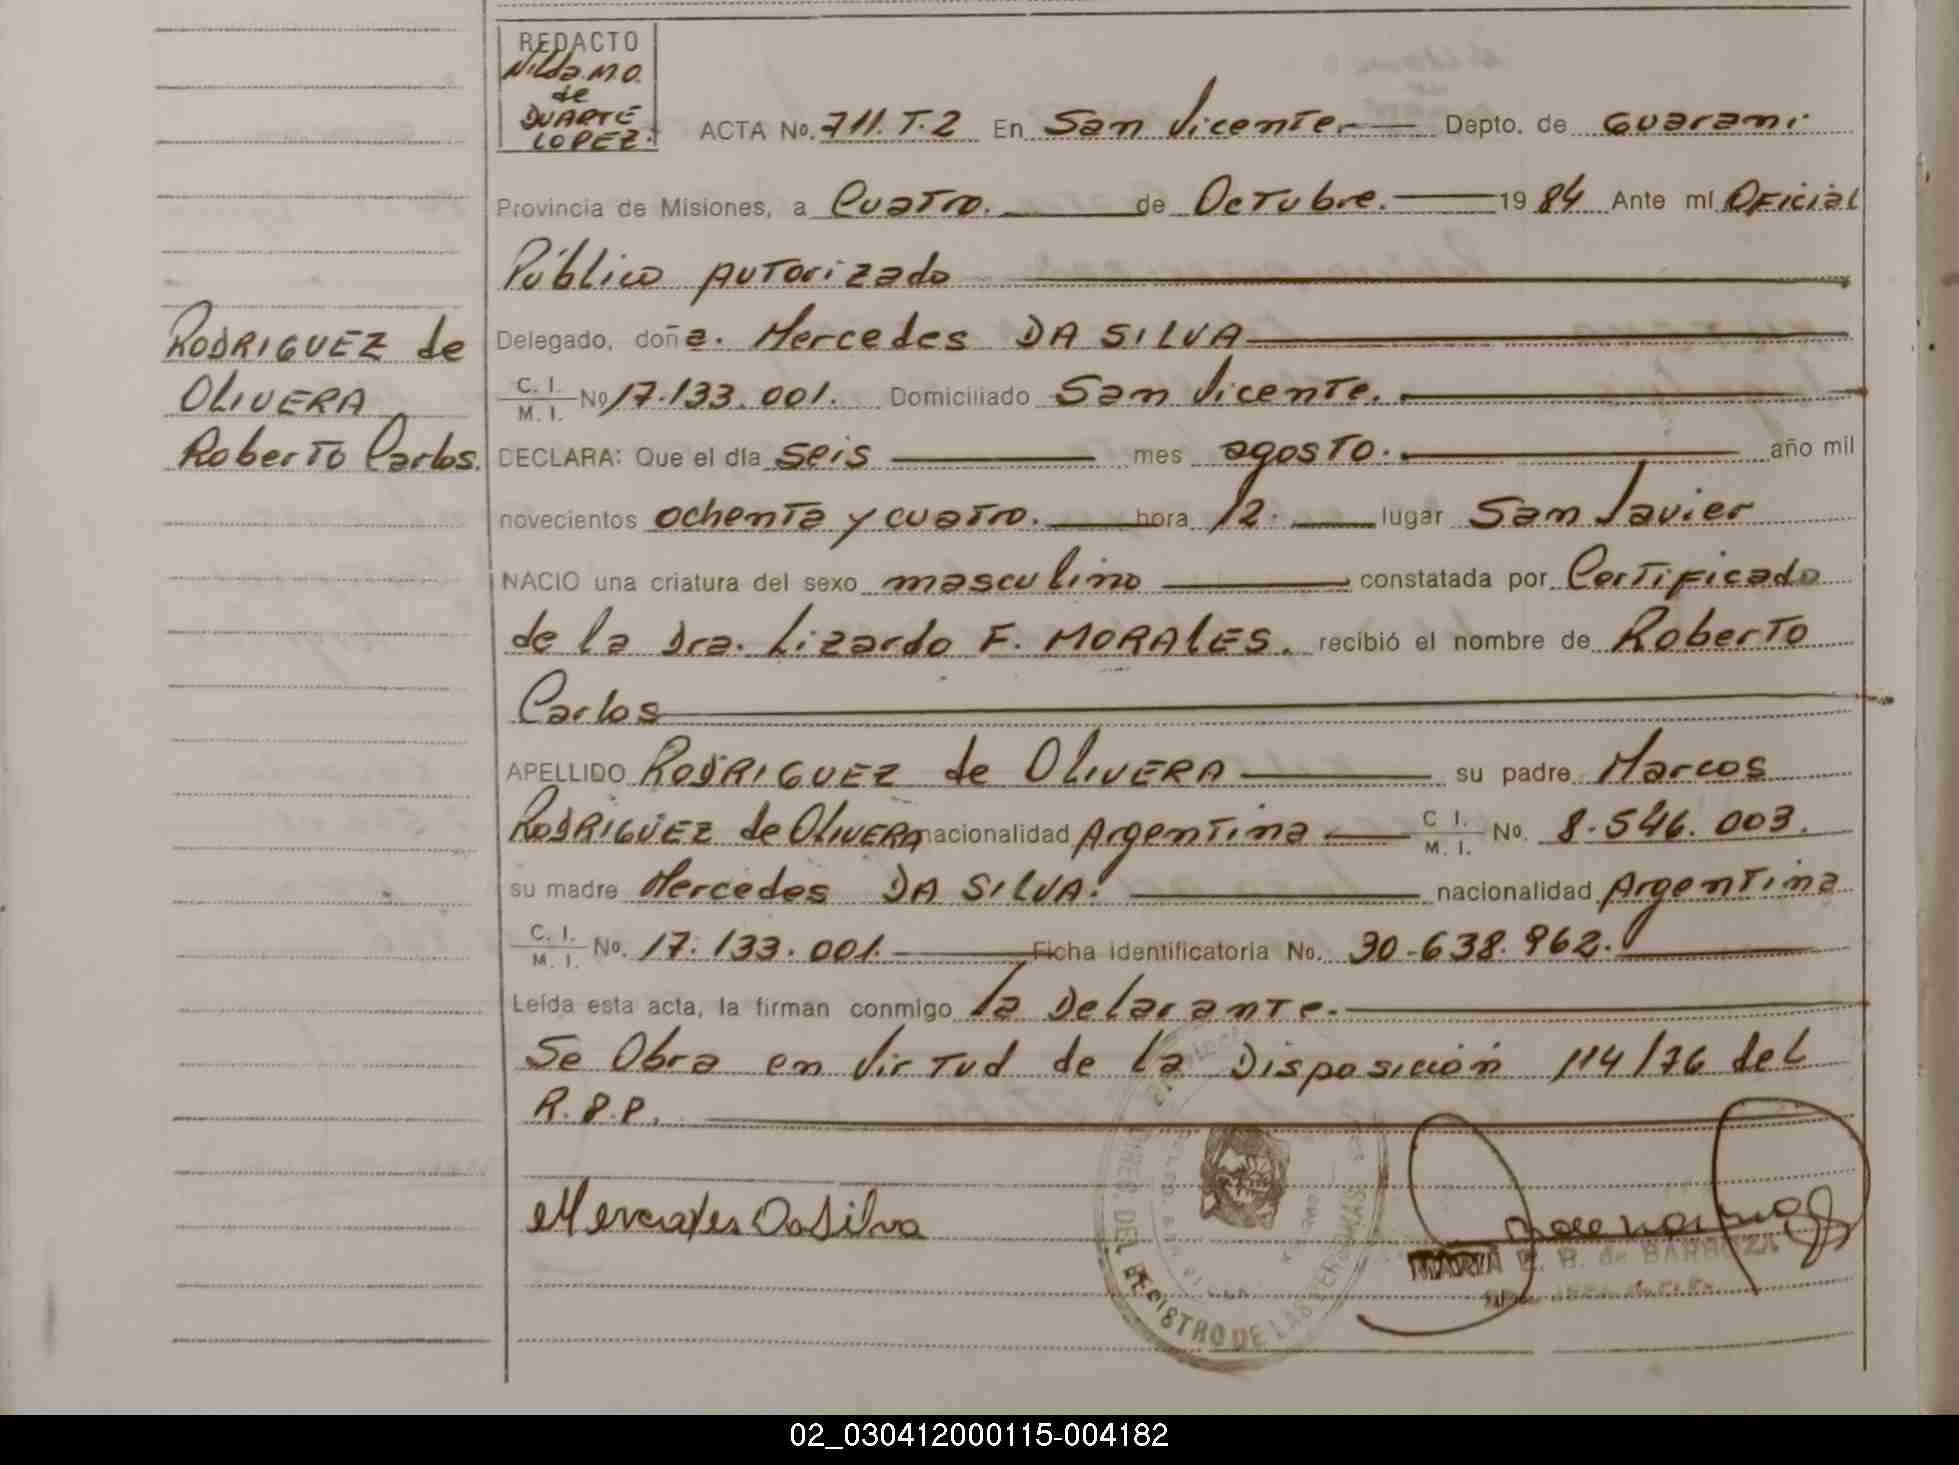 REDACTO
Nilda M.O.
de
DUARTE
LOPEZ.
ACTA No. 711. T. 2 En San Vicente. Depto. de Guarani
Provincia de Misiones, a Cuatro. de Octubre. 1984 Ante mI Oficial
Público Autorizado
Delegado, doña. Mercedes DA SILVA
C. I. / M. I. No 17.133.001. Domiciliado San Vicente.
DECLARA: Que el día seis mes agosto. año mil
novecientos ochenta y cuatro. hora 12. lugar San Javier
NACIO una criatura del sexo masculino constatada por Certificado
de la Dra. Lizardo F. MORALES. recibió el nombre de Roberto
Carlos
APELLIDO RODRIGUEZ de OLIVERA su padre Marcos
RODRIGUEZ de OLIVERA nacionalidad Argentina C I. / M. I. No. 8.546.003.
su madre Mercedes DA SILVA. nacionalidad Argentina
C. I. / M. I. No. 17.133.001. Ficha identificatoria No. 30-638.962.
Leída esta acta, la firman conmigo la Delarante.
Se Obra en Virtud de la Disposición 114/76 del
R.P.P.
RODRIGUEZ de
OLIVERA
Roberto Carlos.
Mercedes DaSilva
DEL REGISTRO DE LAS PERSONAS
MARIA E. B. de BARBOZA
02_030412000115-004182